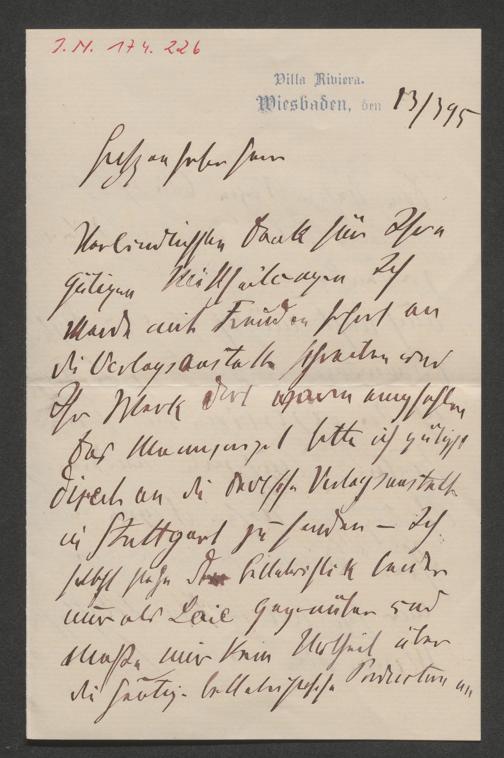 J. N. 174.226
Villa Riviera.
Wiesbaden, den 13/3 95
Hochzuverehrender Herr
Verbindlichsten Dank für Ihre
gütigen Mittheilungen Ich
werde mit Freuden sofort an
die Verlagsanstalt schreiben und
Ihr Werk dort warm empfehlen
Das Manuscript bitte ich gütigst
direct an die deutsche Verlagsanstalt
in Stuttgart zu senden – Ich
selbst stehe der Belletristik leider
nur als Laie gegenüber und
maße mir kein Urtheil über
die heutige belletristische Production an